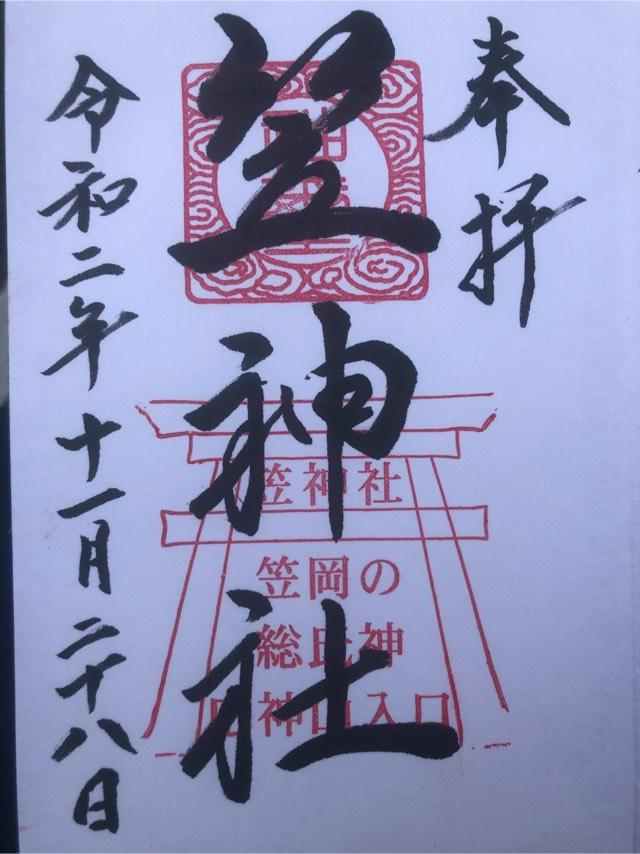 奉拝
笠神社
令和二年十一月二十八日
笠神社
笠岡の
総氏神
神山入口